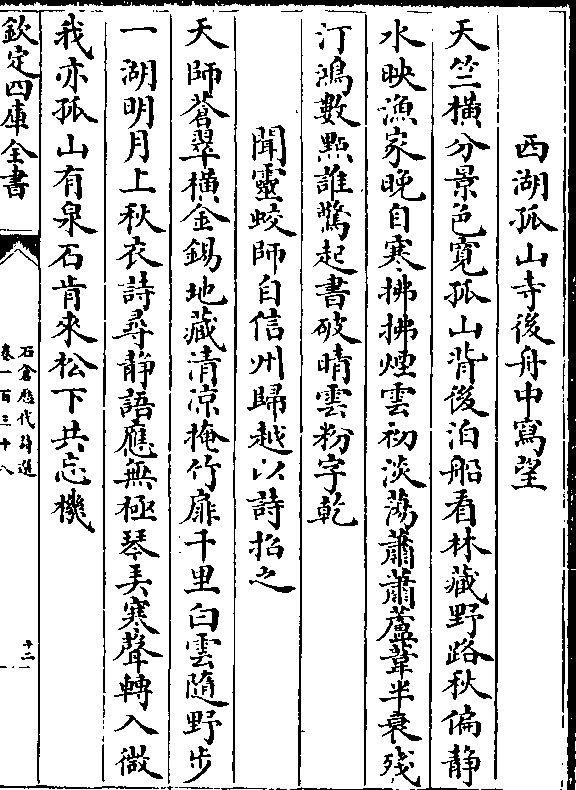 西湖孤山寺後舟中寫望
天竺橫分景色寛孤山背後泊船看林藏野路秋偏静
水映漁家晚自寒拂拂煙雲初淡蕩蕭蕭蘆葦半衰殘
汀鴻數點誰驚起書破晴雲粉字乾
聞靈蛟師自信州歸越以詩招之
天師蒼翠橫金錫地藏清涼掩竹扉千里白雲隨野步
一湖明月上秋衣詩尋静語應無極琴弄寒聲轉入微
我亦孤山有泉石肯來松下共忘機
欽定四庫全書
石倉歷代詩選
卷一百三十八
十二